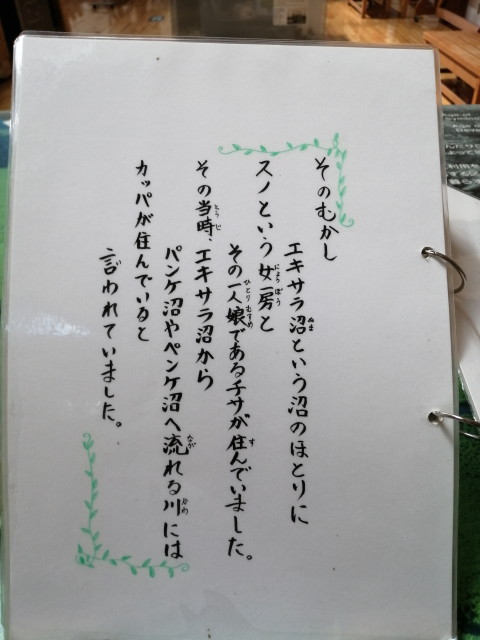 そのむかし
エキサラ沼という沼のほとりに
スノという女房と
その一人娘であるチサが住んでいました。
その当時、エキサラ沼から
パンケ沼やペンケ沼へ流れる川には
カッパが住んでいると
言われていました。